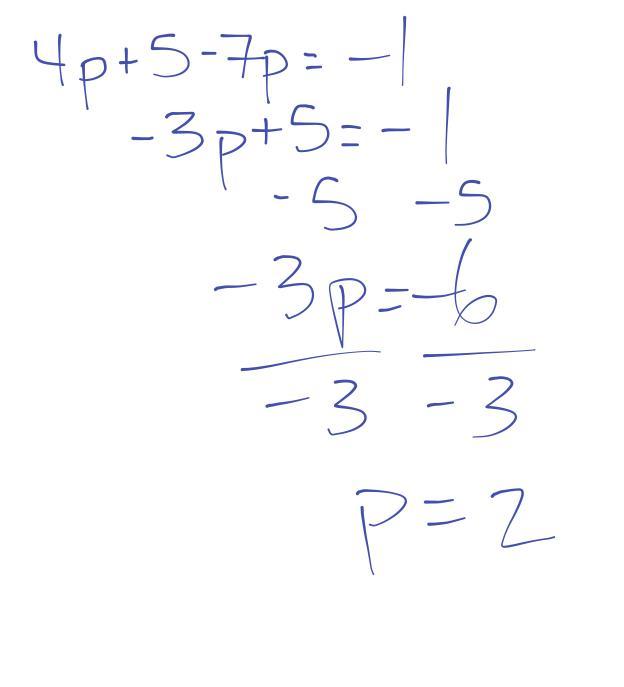 4p+5-7p=-1
-3p+5=-1
-5 -5
-3p=-6
-3 -3
p=2